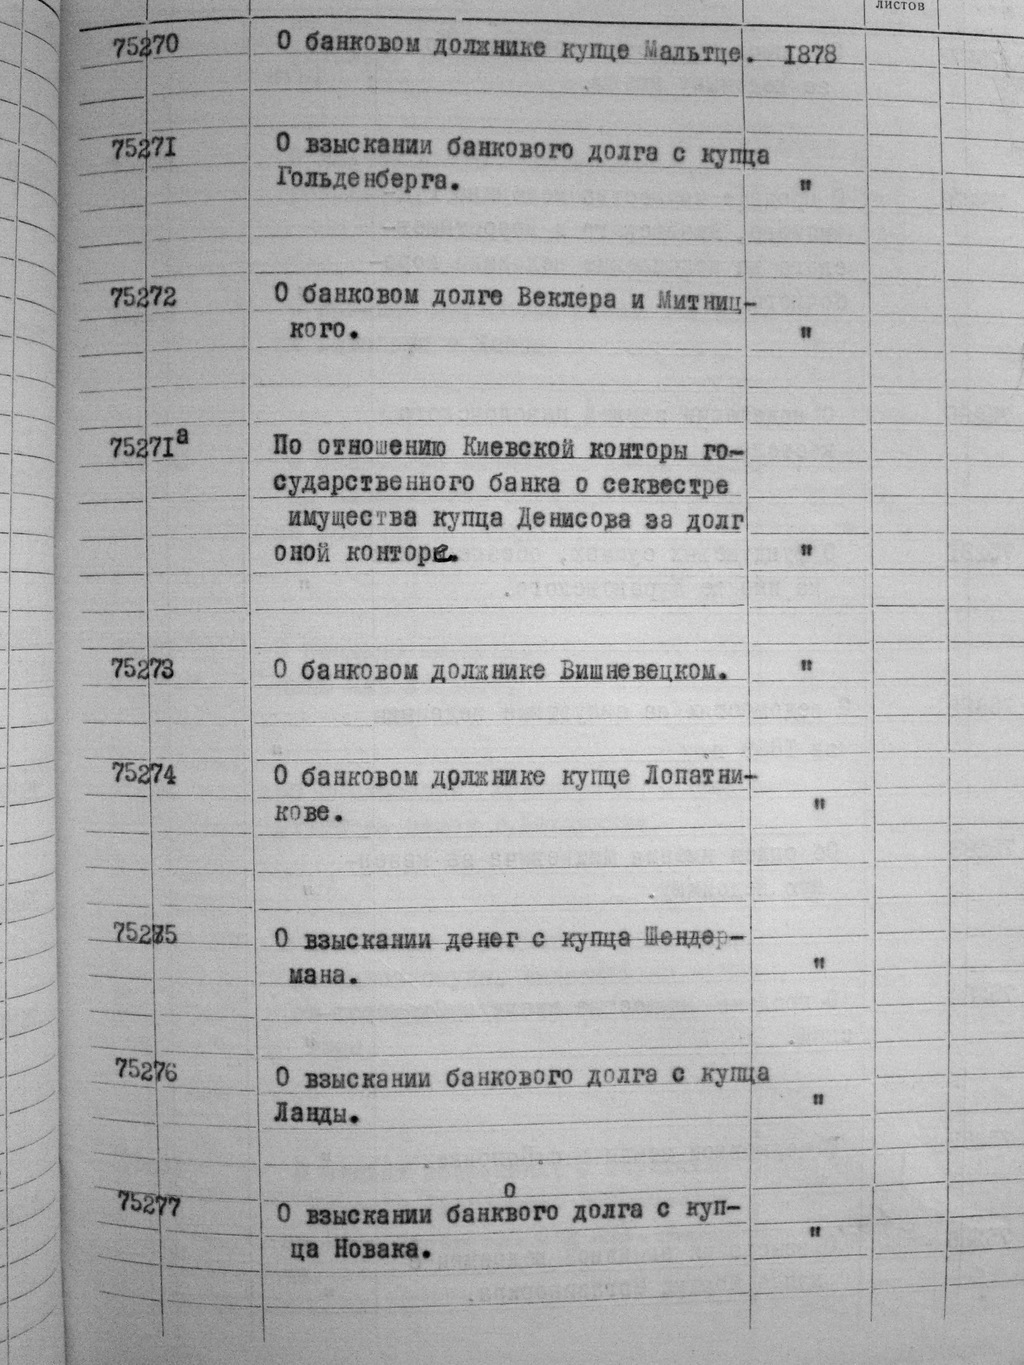 листов
75270 О банковом должнике купце Мальтце. 1878
75271 О взыскании банкового долга с купца
Гольденберга. "
75272 О банковом долге Веклера и Митниц-
кого. "
75271а По отношению Киевской конторы го-
сударственного банка о секвестре
имущества купца Денисова за долг
оной конторе. "
75273 О банковом должнике Вишневецком. "
75274 О банковом должнике купце Лопатни-
кове. "
75275 О взыскании денег с купца Шендер-
мана. "
75276 О взыскании банкового долга с купца
Ланды. "
75277 О взыскании банквого долга с куп-
о
ца Новака. "